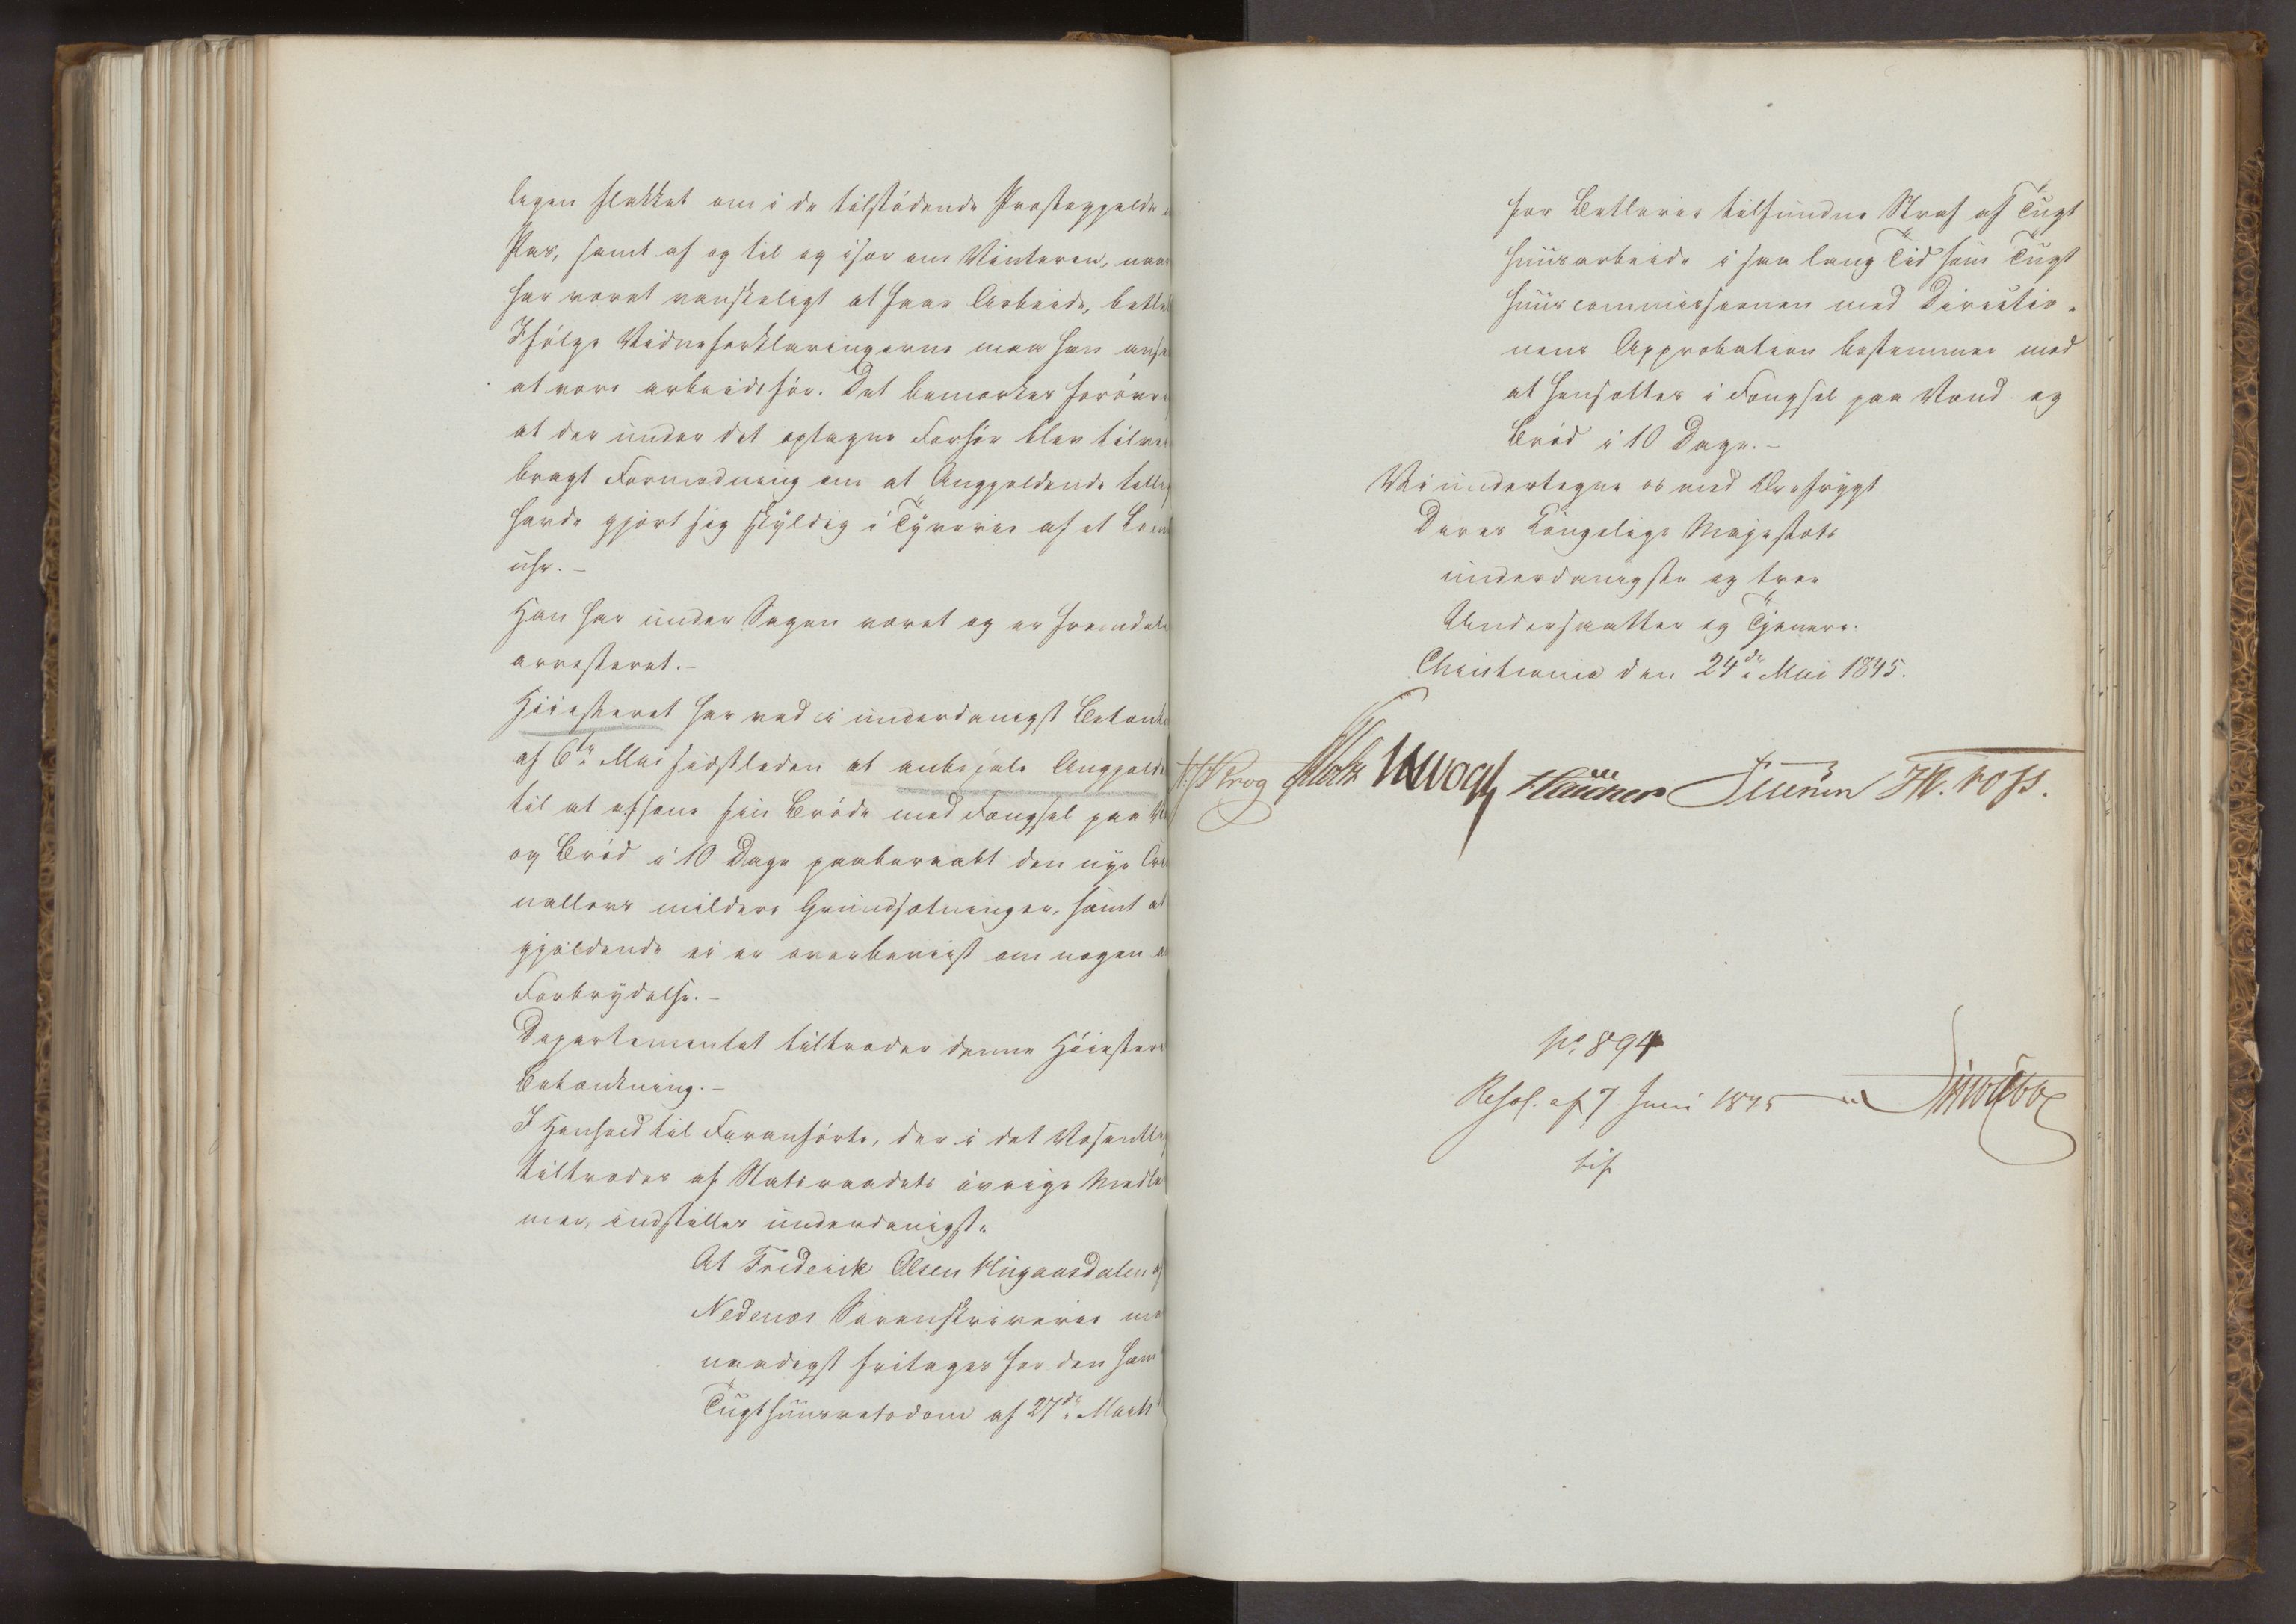 legen flakket om i de tilstødende Prestegjelde
Pas, samt af og til og især om Vinteren, naar
har været vanskeligt at faae Arbeide, betle
Ifølge Vidneforklaringerne maa han anse
at være arbeidsfør. Det bemærkes forøvri
at der under det optagne Forhør blev tilvei
bragt Formodning om at Angjeldende tillig
havde gjort sig skyldig i Tyverie af et Lom
uhr.-
Han har under Sagen været og er fremdele
arresteret.-
Høiesteret har ved i underdanigst Betænk
af 6te Mai sidstleden at anbefale Angjelde
til at afsone sin Brøde med Fængsel paa
og Brød i 10 Dage paaberaabt den nye Cri
nallovs mildere Grundsætninger, samt at
gjældende ei er overbeviist om nogen
Forbrydelse.-
Departementet tiltræder denne Høiestere
Betænkning.-
I Henhold til Foranførte, der i det Væsentlig
tiltrædes af Statsraadets øvrige Medle
mer, indstilles underdanigst:
At Frederik Olsen Hugaasdalen af
Nedenæs Sorenskriverie maa
naadigst fritages for den ham
Tugthuusretsdom af 27de Marts
for Betlerie tilfundne Straf af Tugt
huusarbeide i saa lang Tid som Tugt
huuscommissionen med Directio-
nens Approbation bestemmer mod
at hensættes i Fængsel paa Vand og
Brød i 10 Dage.-
Vi undertegne os med Ærefrygt
Deres Kongelige Majestæts
underdanigste og troe
Undersaatter og Tjenere.
Christiania den 24de Mai 1845.
Krog Holst Vogt Schouboe
No 894
Resol. af 7 Juni 1845